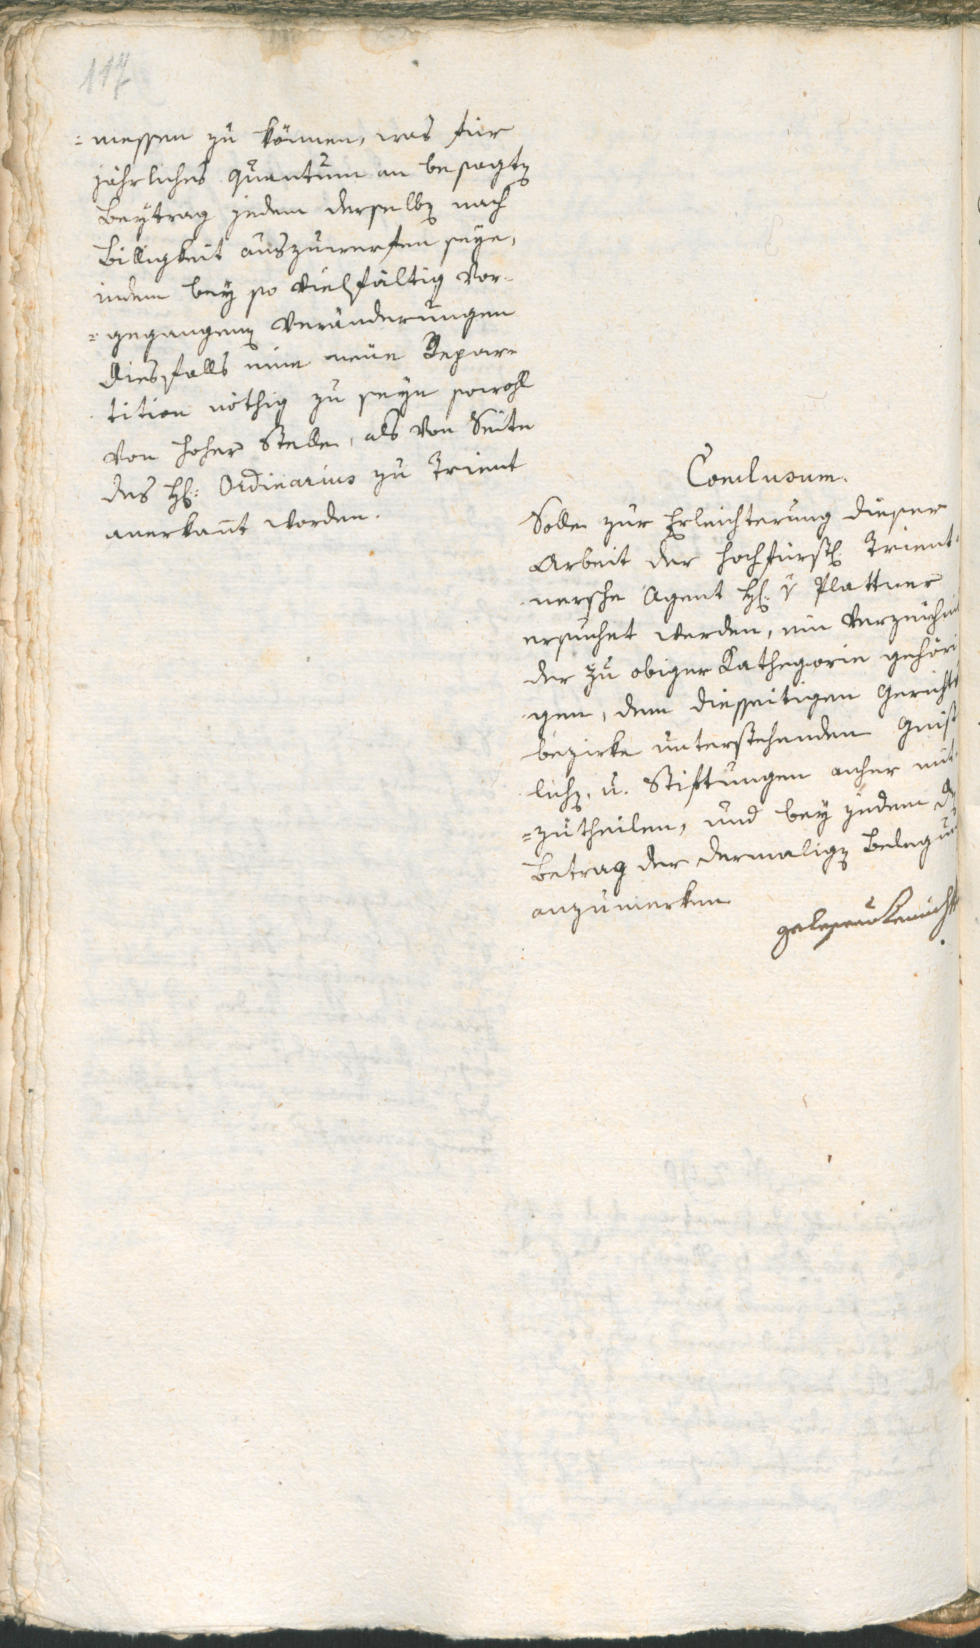 117
=messen zu können, was für
jährliches Quantum an besagtn
Beÿtrag jedem derselbn nach
Billigkeit auszuwerfen seÿe,
indem beÿ so vielfältig vor=
=gegangenen Veränderungen
diesfalls eine neue Repar=
tition nöthig zu seÿn sowohl
von hoher Stelle, als von Seite
des H: Ordinarius zu Trient
anerkant worden.
Conclusum.
Solle zur Erleichterung dieser
Arbeit der hochfürstl. Trient=
nersche Agent H. v Plattner
ersuchet werden, ein Verzeichni
der zu obiger Kathegorie gehöri
gen, dem diesseitigen Gerichts
bezirke unterstehenden Geist
lichn. u. Stiftungen anher mit=
=zutheilen, und beÿ jedem dn
Betrag der dermalign Belegun
anzumerken